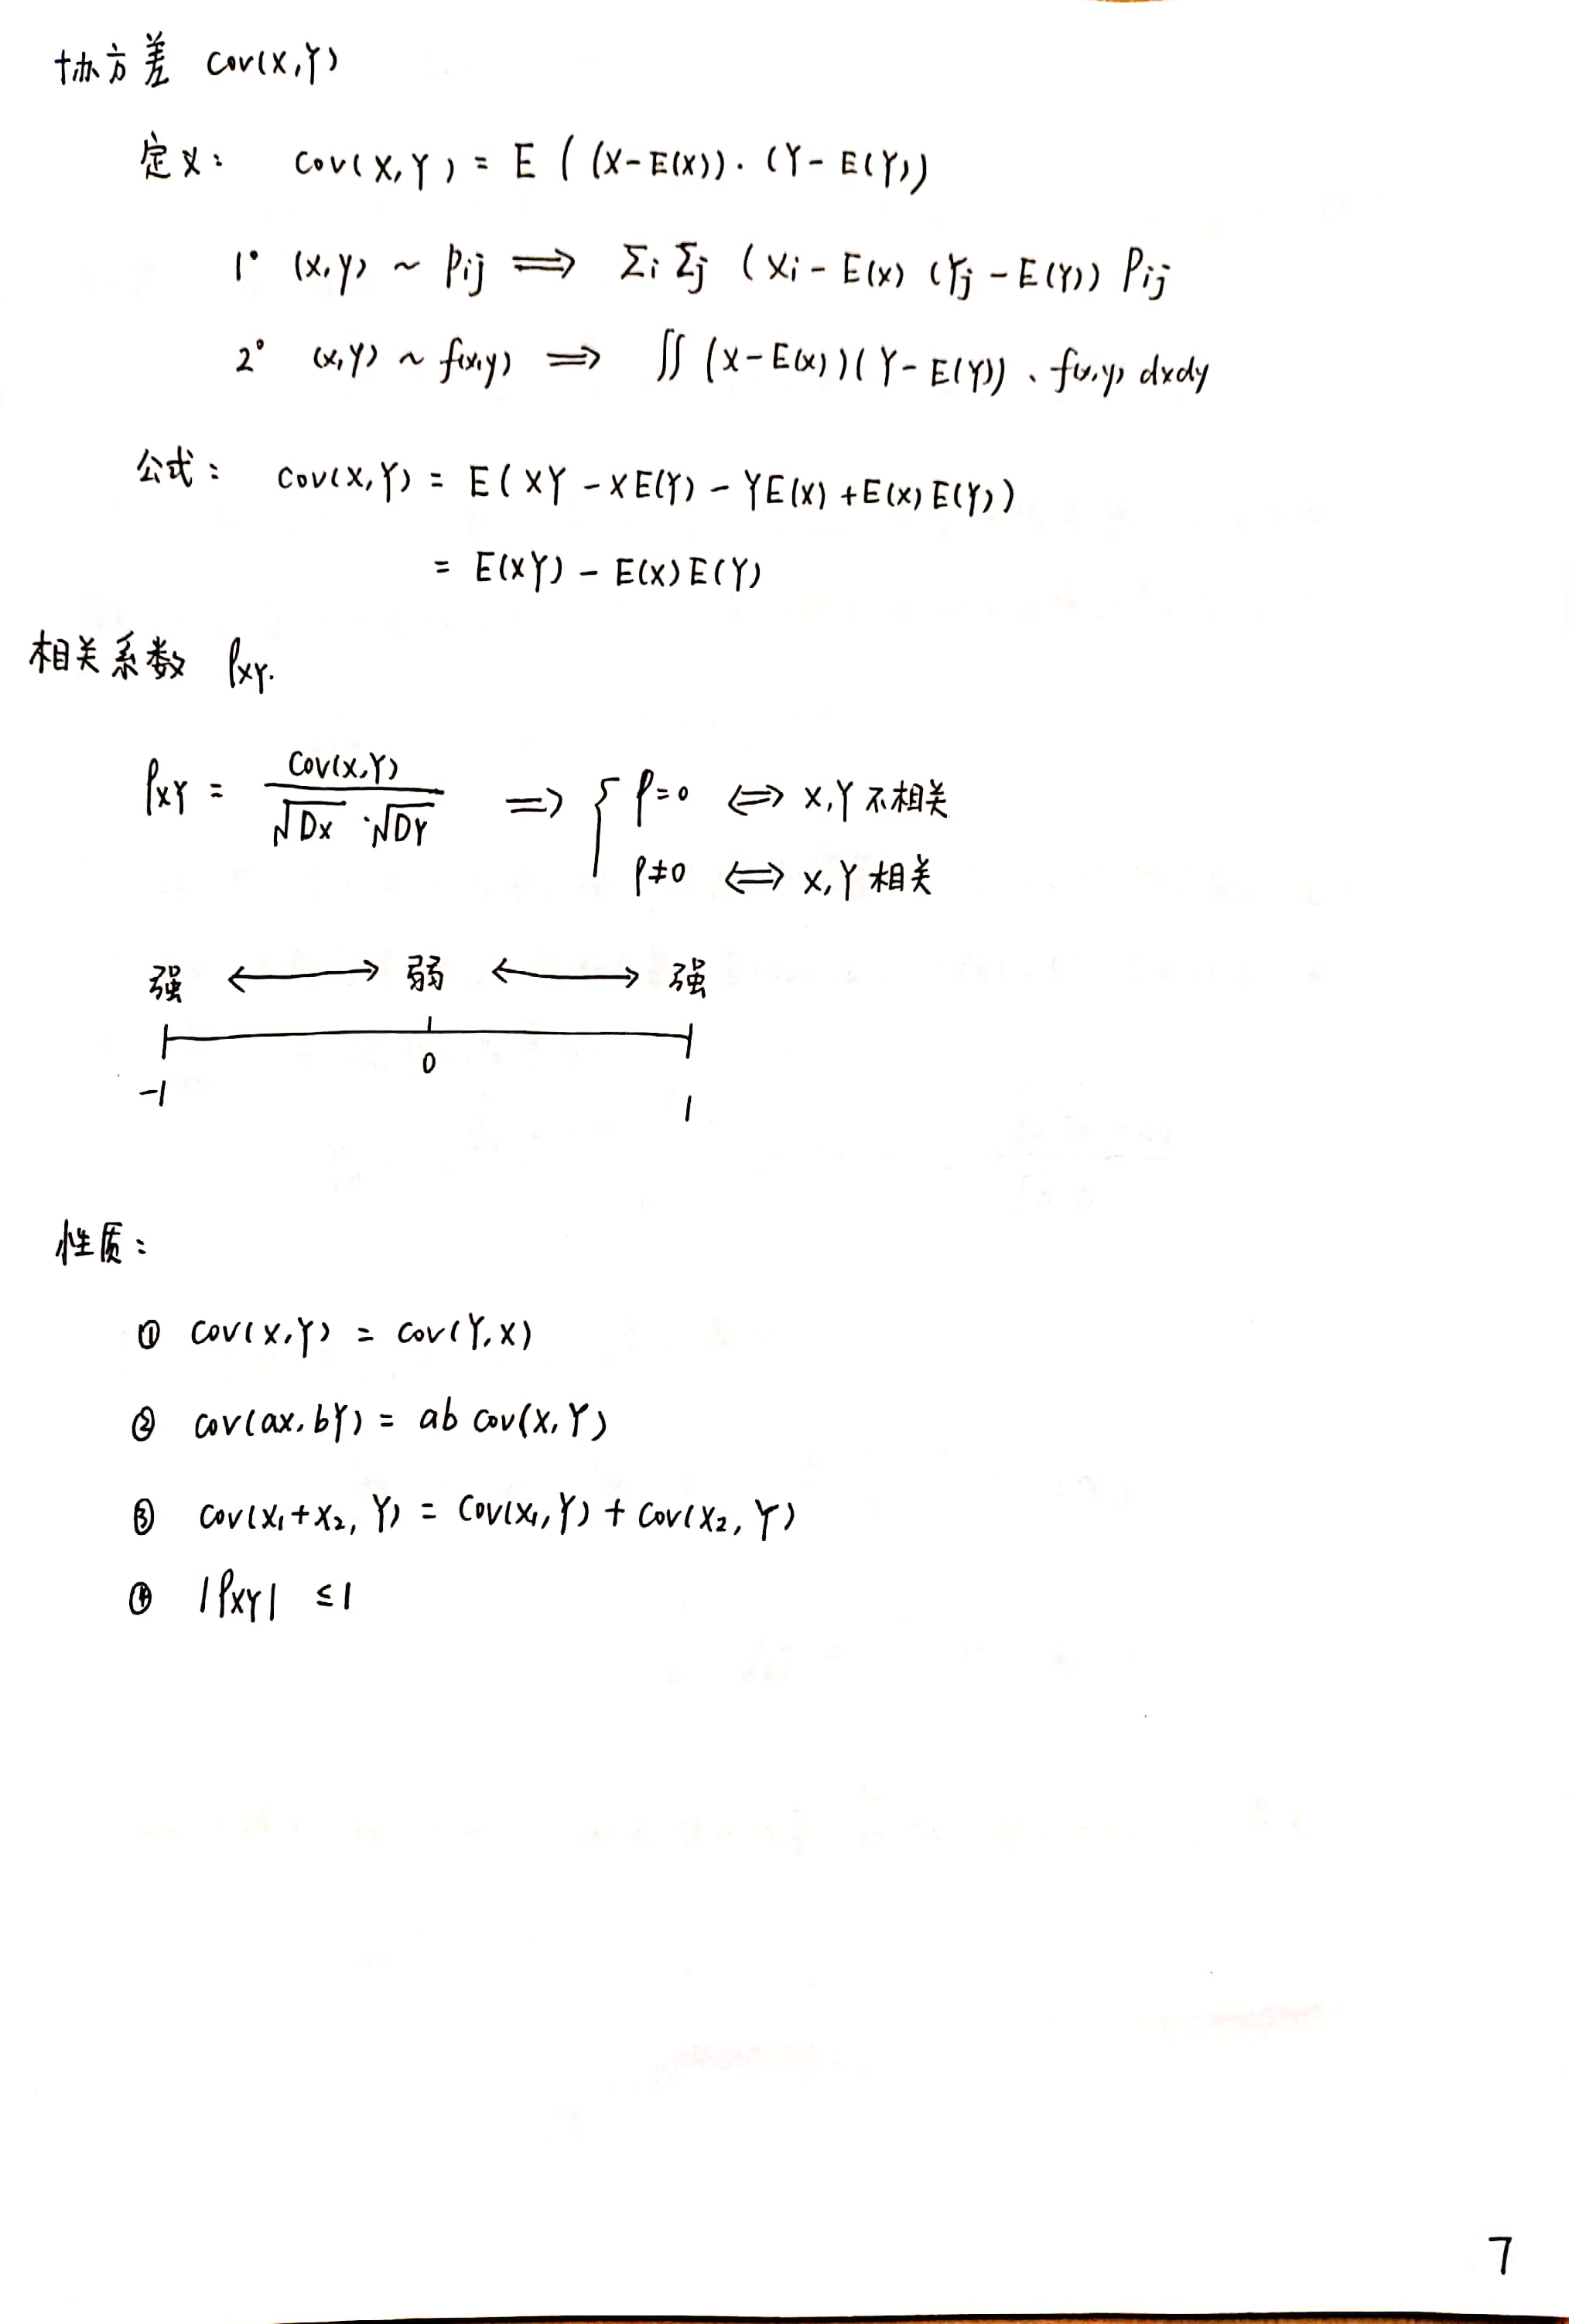 协方差 Cov(X,Y)
定义： Cov(X,Y) = E ( (X-E(X))·(Y-E(Y))
1° (x,y) ~ Pij ⟹ Σi Σj (Xi-E(x) (Yj-E(Y)) Pij
2° (x,y) ~ f(x,y) ⟹ ∬ (X-E(x))(Y-E(Y))、f(x,y) dxdy
公式： Cov(X,Y) = E(XY-XE(Y)-YE(X)+E(X)E(Y))
= E(XY)-E(X)E(Y)
相关系数 ρXY.
ρXY = Cov(X,Y) / √DX·√DY ⟹ { ρ=0 ⟺ X,Y 不相关
ρ≠0 ⟺ X,Y 相关
强 ⟷ 弱 ⟷ 强
0
-1 1
性质：
① Cov(X,Y) = Cov(Y,X)
② Cov(aX,bY) = ab Cov(X,Y)
③ Cov(X₁+X₂,Y) = Cov(X₁,Y)+Cov(X₂,Y)
④ |ρXY| ≤1
7